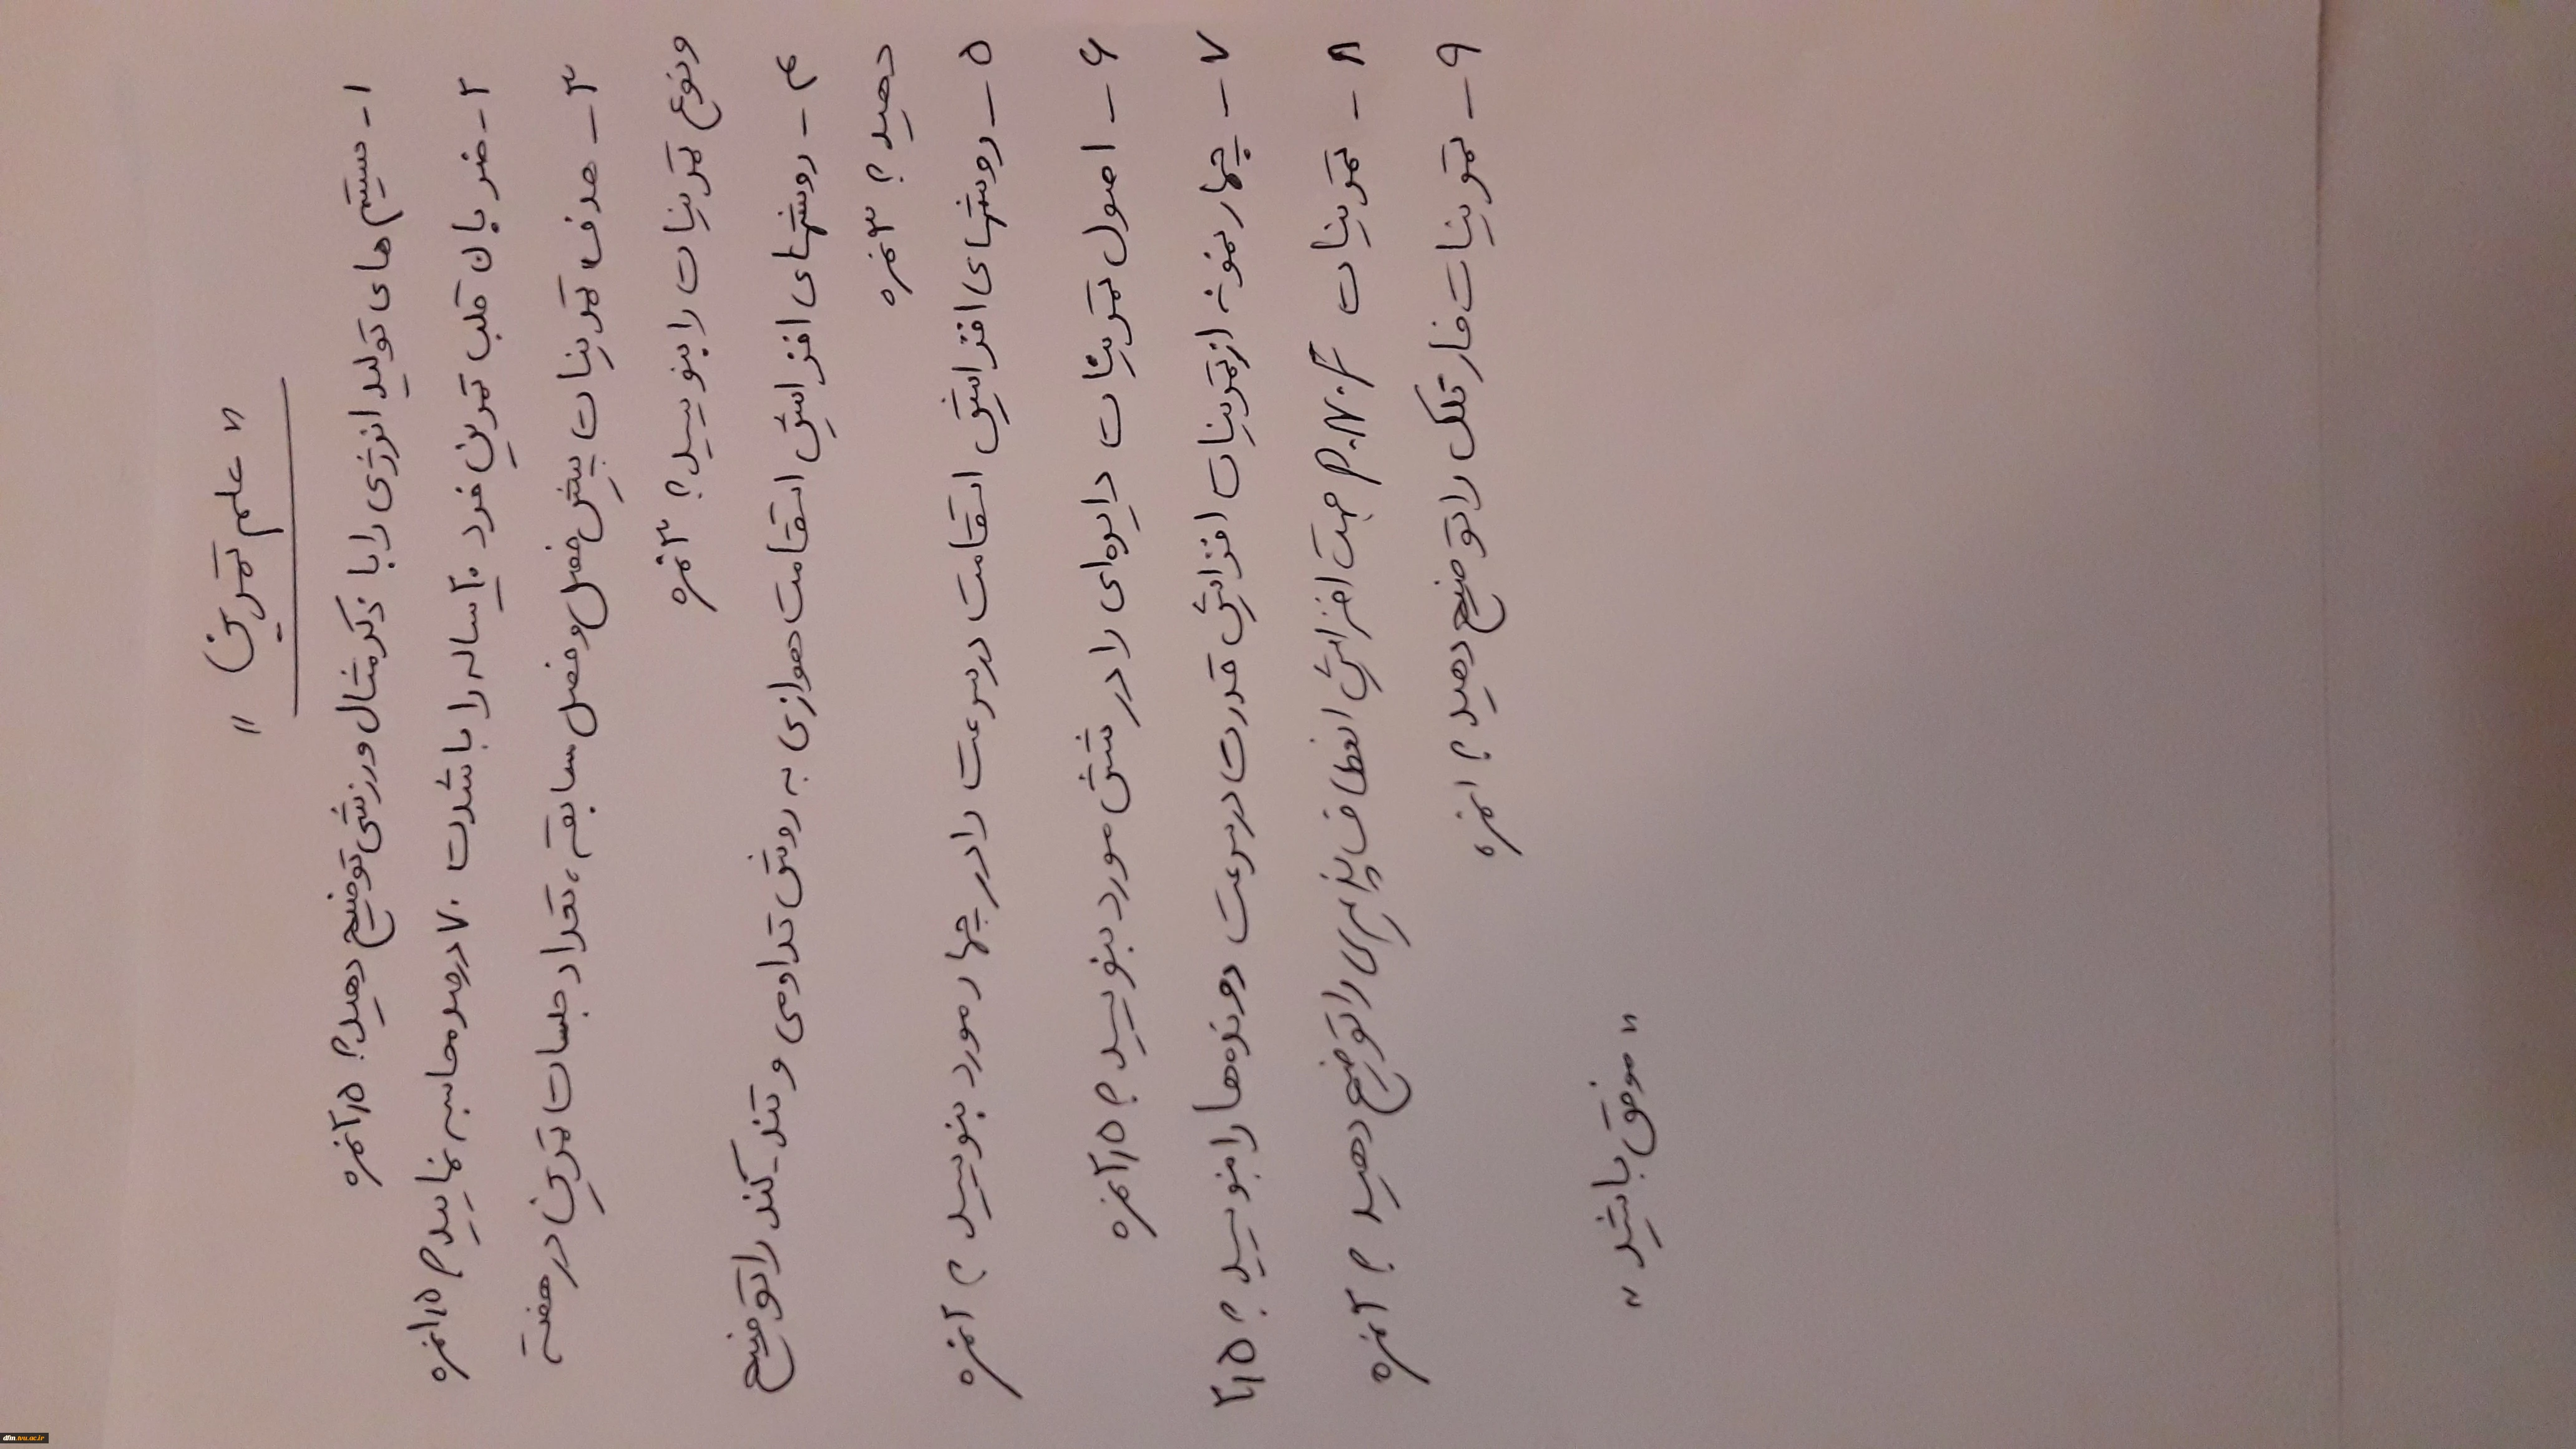 « علم تمرین »
۱- سیستم های تولید انرژی را با ذکر مثال ورزشی توضیح دهید؟ ۲٫۵ نمره
۲- ضربان قلب تمرین فرد ۲۰ ساله را با شدت ۷۰ درصد محاسبه نمایید؟ ۱٫۵ نمره
۳- هدف تمرینات پیش فصل و فصل مسابقه، تعداد جلسات تمرین در هفته
و نوع تمرینات را بنویسید؟ ۳ نمره
۴- روشهای افزایش استقامت هوازی به روش تداومی و تند-کند را توضیح
دهید؟ ۳ نمره
۵- روشهای افزایش استقامت در سرعت را در چهار مورد بنویسید؟ ۲ نمره
۶- اصول تمرینات دایره‌ای را در شش مورد بنویسید؟ ۲٫۵ نمره
۷- چهار نمونه از تمرینات افزایش قدرت در سرعت دونده‌ها را بنویسید؟ ۲٫۵
۸- تمرینات P.N.F جهت افزایش انعطاف پذیری را توضیح دهید؟ ۲ نمره
۹- تمرینات فارتلک را توضیح دهید؟ ۱ نمره
« موفق باشید »
dfm.tvu.ac.ir